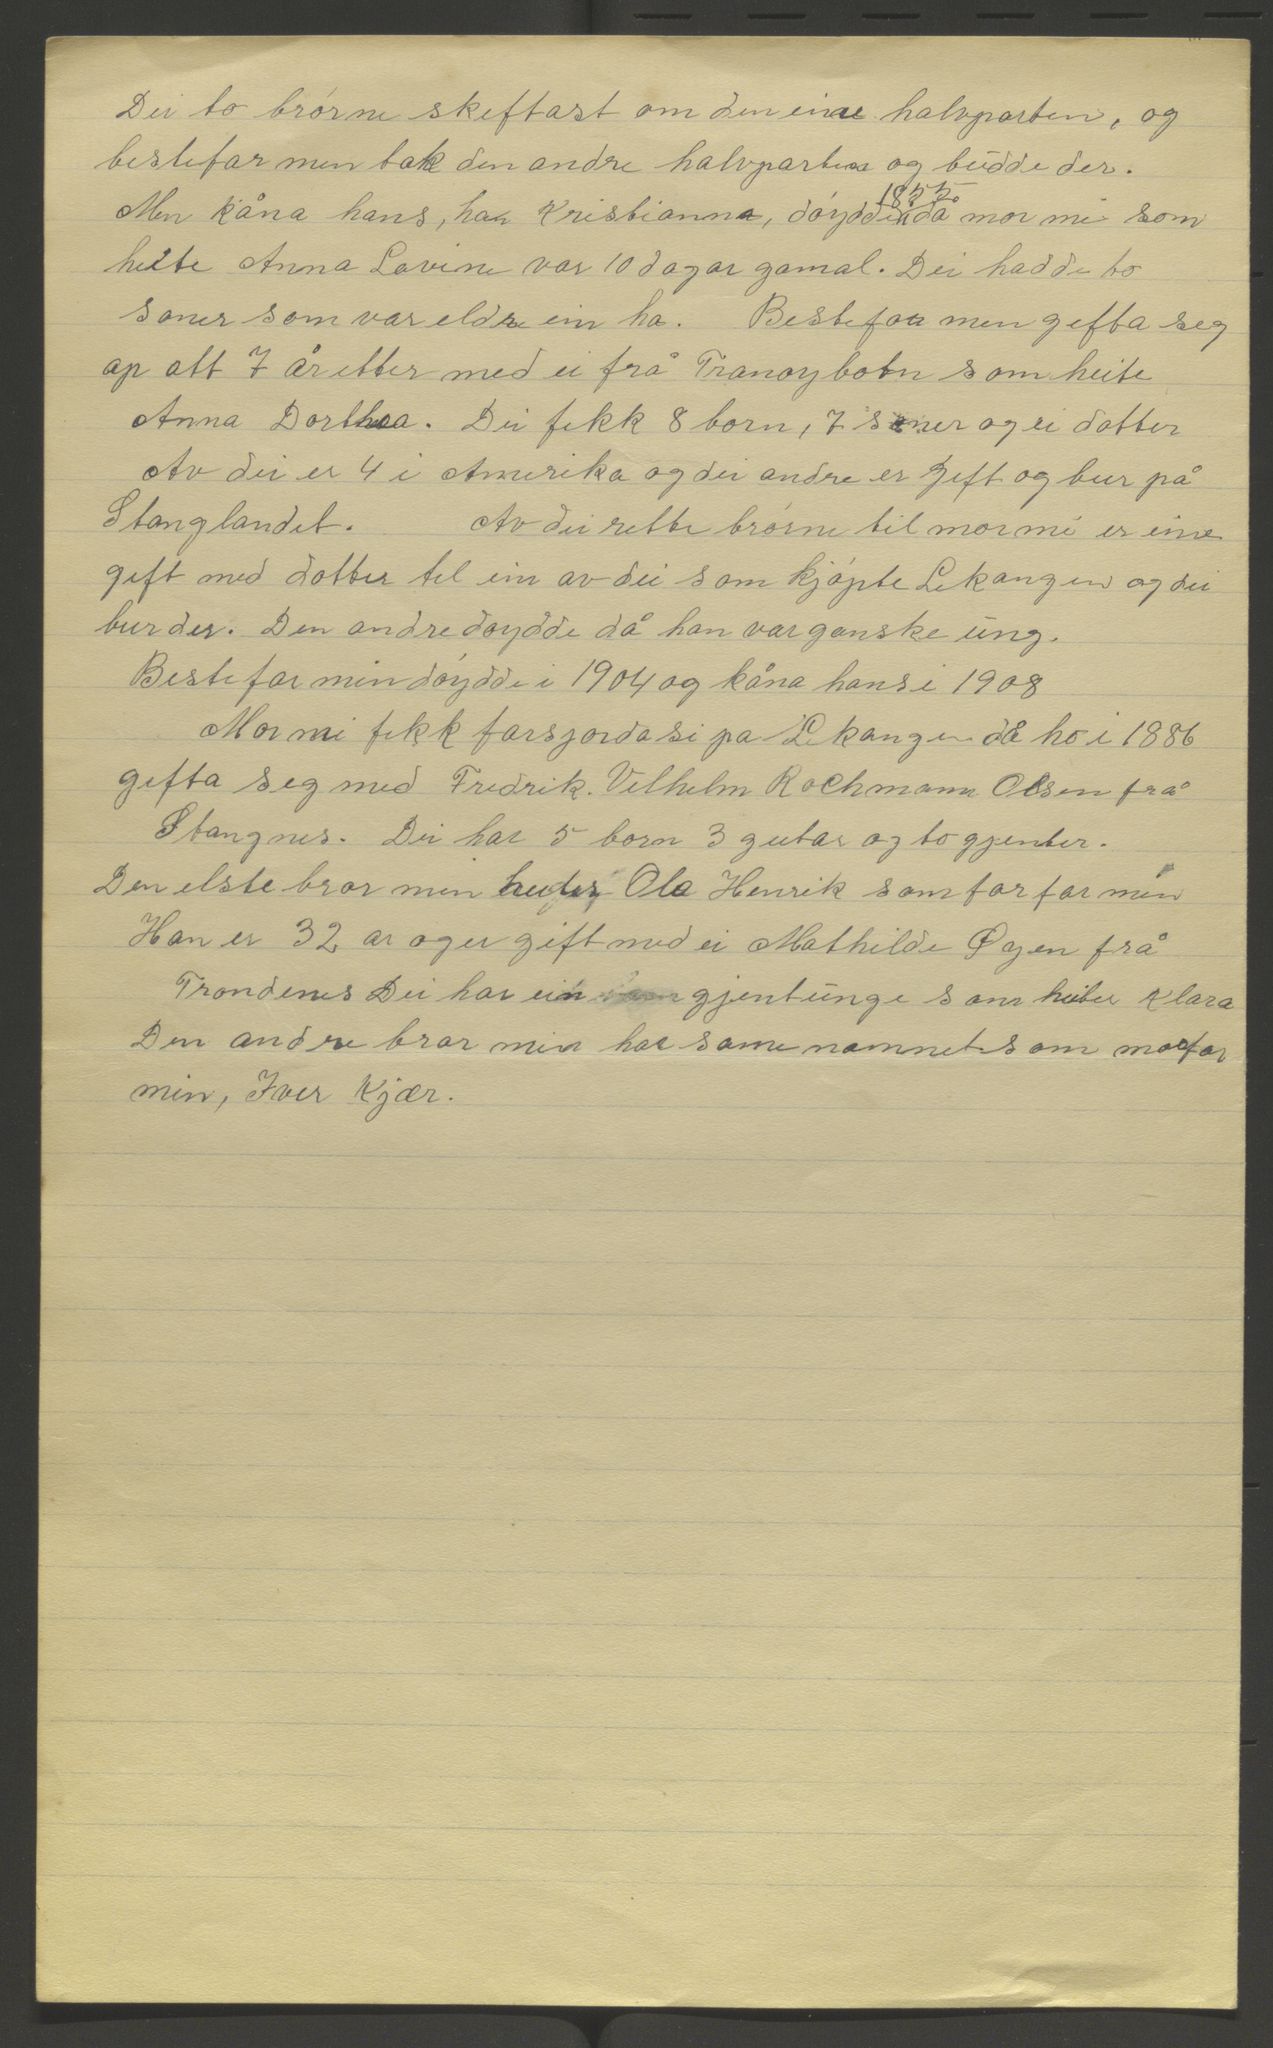 Dei to brórne skeftast om den eine halvparten, og
bestefar men tok den andre halvparten og büdde der.
Men kåna hans, ha Kristianna, dóydde i 1855 då mor mi som
heite Anna Lovine var 10 dagar gamal. Dei hadde to
soner som var eldre ein ho. Bestefar men gefta seg
op att 7 år etter med ei frå Tranoybotn som heite
Anna Dorthea. Dei fekk 8 born, 7 soner og ei dotter
Av dei er 4 i Amerika og dei andre er gift og bur på
Stanglandet. Av dei rette brórne til mor mi er eine
gift med dotter tel ein av dei som kjópte Lekangen og dei
bur der. Den andre doydde då han var ganske üng.
Bestefar min dóydde i 1904 og kåna hans i 1908
Mor mi fekk farsjorda si pa Lekangen då ho i 1886
gefta seg med Fredrik. Vilhelm Rochmann Olsen frå
Stangnes. Dei har 5 born 3 gutar og to gjenter.
Den elste bror min heiter Ola Henrik som far far min
Han er 32 ar og er gift med ei Mathilde Øyen frå
Trondenes Dei har ein gjentünge som heiter Klara
Den andre bror min har same namnet som morfar
min, Iver Kjær.